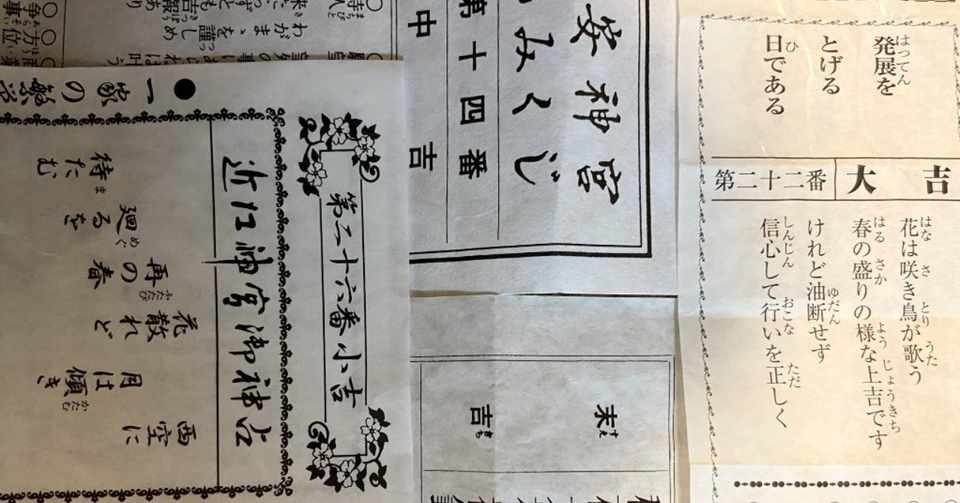 発展を
とげる
日である
第二十二番 大吉
花は咲き鳥が歌う
春の盛りの様な上吉です
けれど油断せず
信心して行いを正しく
安神宮
みくじ
第十四番
中吉
末吉
第二十六番小吉
近江神宮御神占
西空に
月は傾き
花散れど
再の春
廻るを
待たむ
●一家の繁栄